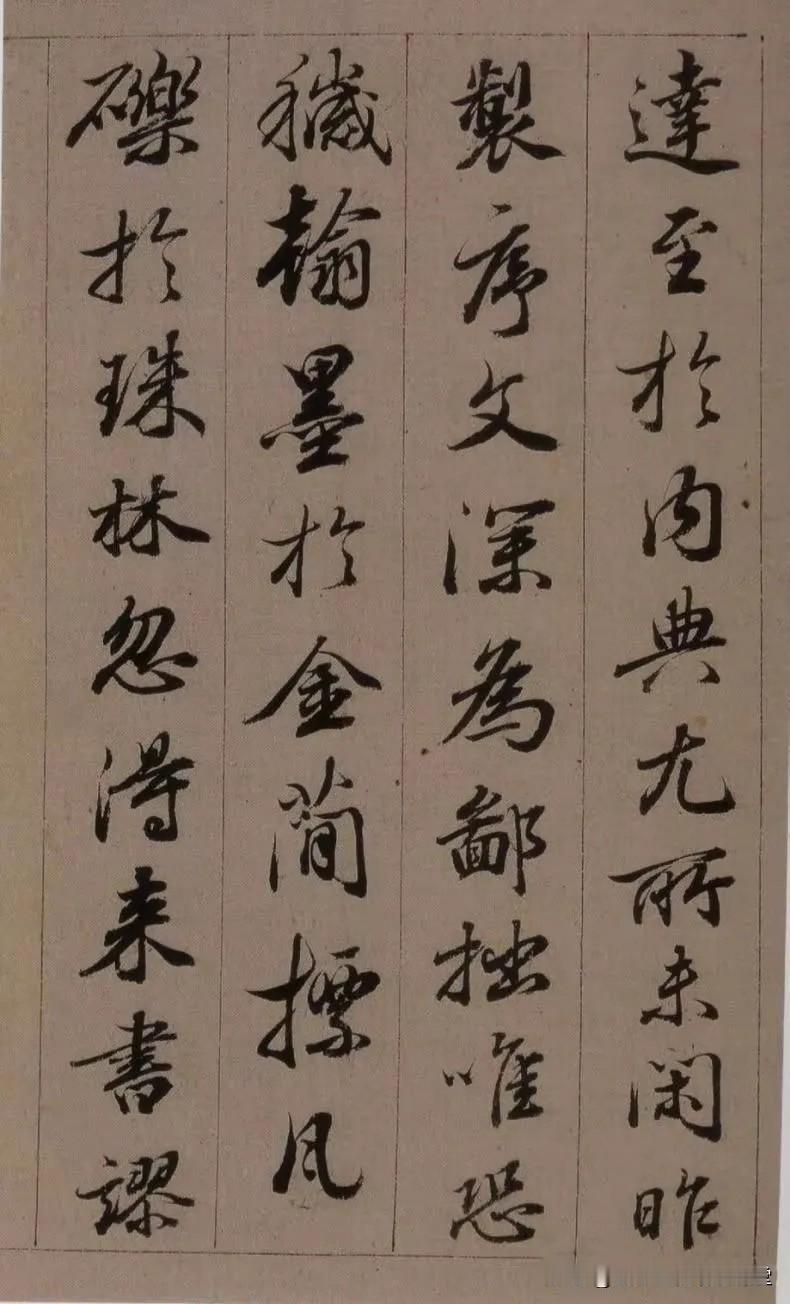 達至於内典尤所未閑昨
製序文深為鄙拙唯恐
穢翰墨於金簡摽瓦
礫於珠林忽得来書謬